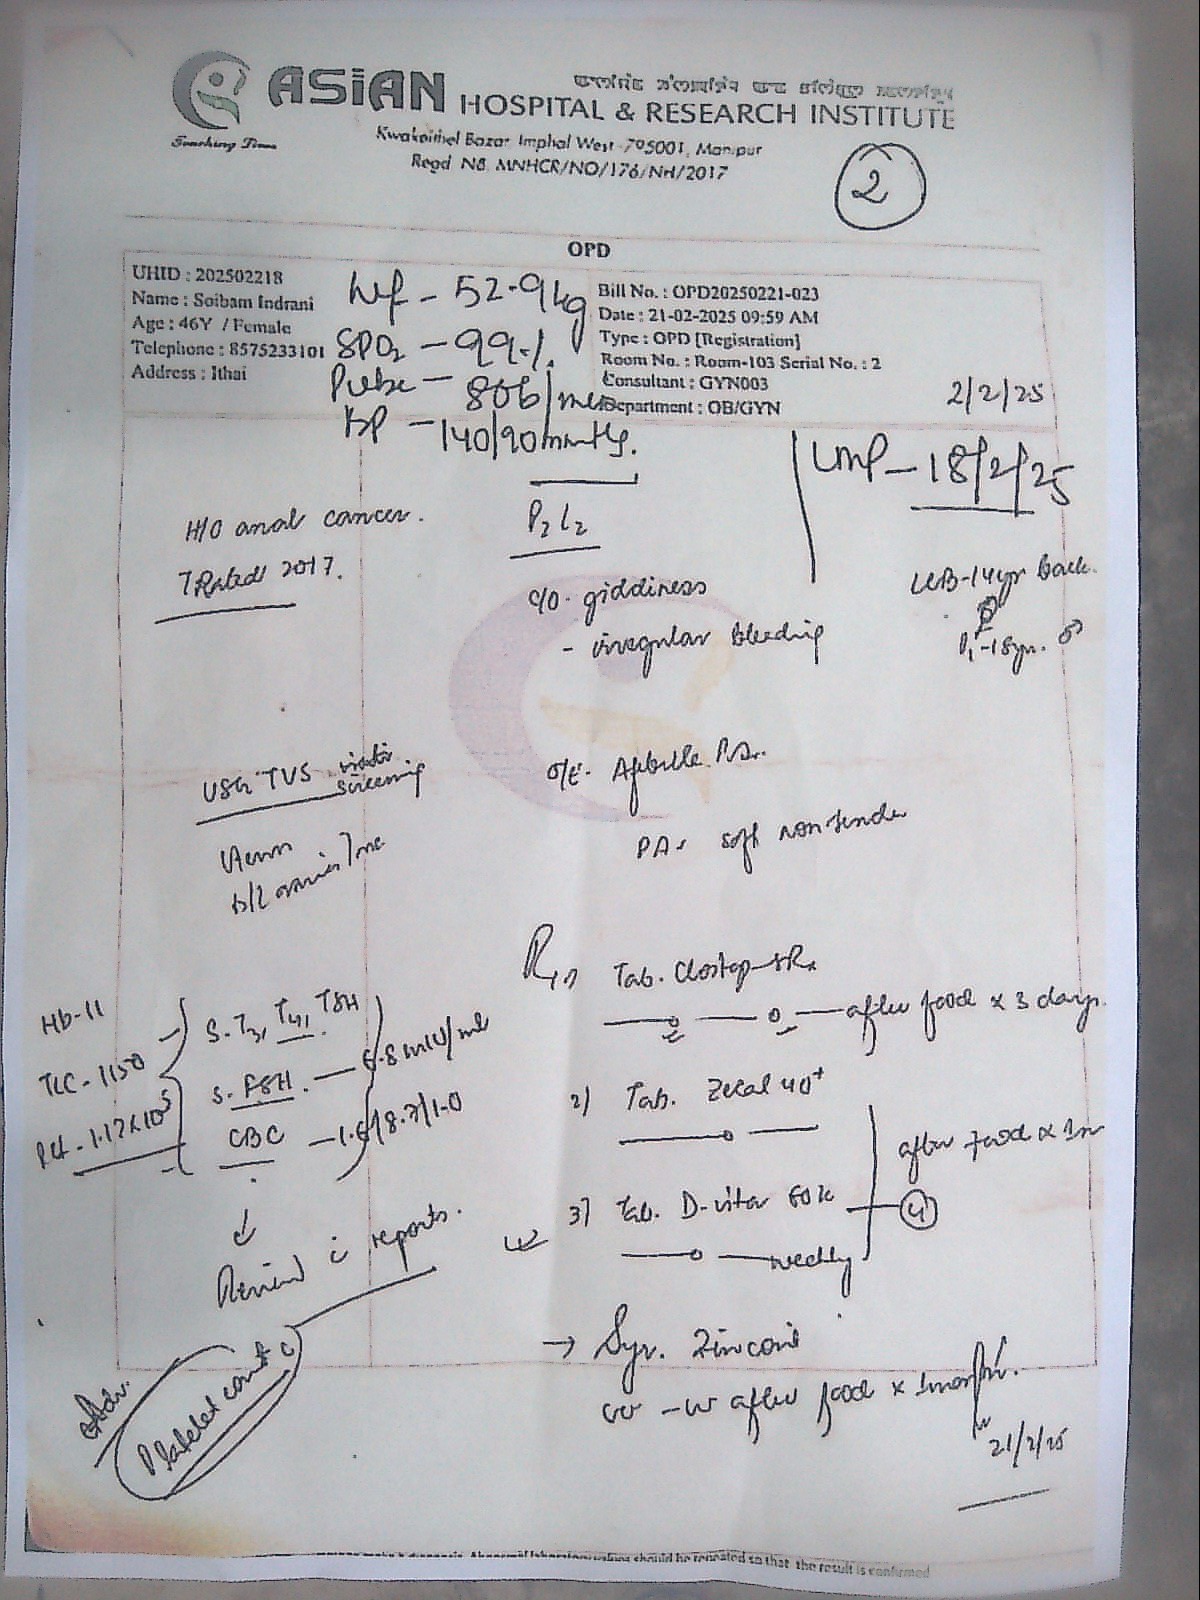 ASiAN
HOSPITAL & RESEARCH INSTITUTE
Kwakeithel Bazar, Imphal West -795001, Manipur
Regd No. MNHCR/NO/176/NH/2017
2
OPD
UHID : 202502218
Name : Soibam Indrani
Age : 46Y / Female
Telephone : 8575233101
Address : Ithai
Wt - 52.9 kg
SPO2 - 99%
Pulse - 80b/min
BP - 140/90mmHg.
Bill No. : OPD20250221-023
Date : 21-02-2025 09:59 AM
Type : OPD [Registration]
Room No. : Room-103 Serial No. : 2
Consultant : GYN003
Department : OB/GYN
2/2/25
LMP - 18/2/25
H/O anal cancer.
Treated 2017.
P2 L2
c/o giddiness
- irregular bleeding
LCB-14yr back.
P1-18yr. ♂
USG TVS
screening
O/E- Afebrile
PA- soft non tender
Hb-11
TLC- 1150
Plt - 1.17x10^5
S. T3, T4, TSH
S. FSH. - 6.8 mIU/ml
CBC
↓
Review c reports.
Adv.
Platelet count c
Rx 1)
after food x 3 days.
2) Tab. 40+
3) Tab. D-vita 60k - 4
weekly
after food x 1m
→ Syr. Zincovit
after food x 1month.
21/2/25
Abnormal laboratory values should be repeated so that the result is confirmed